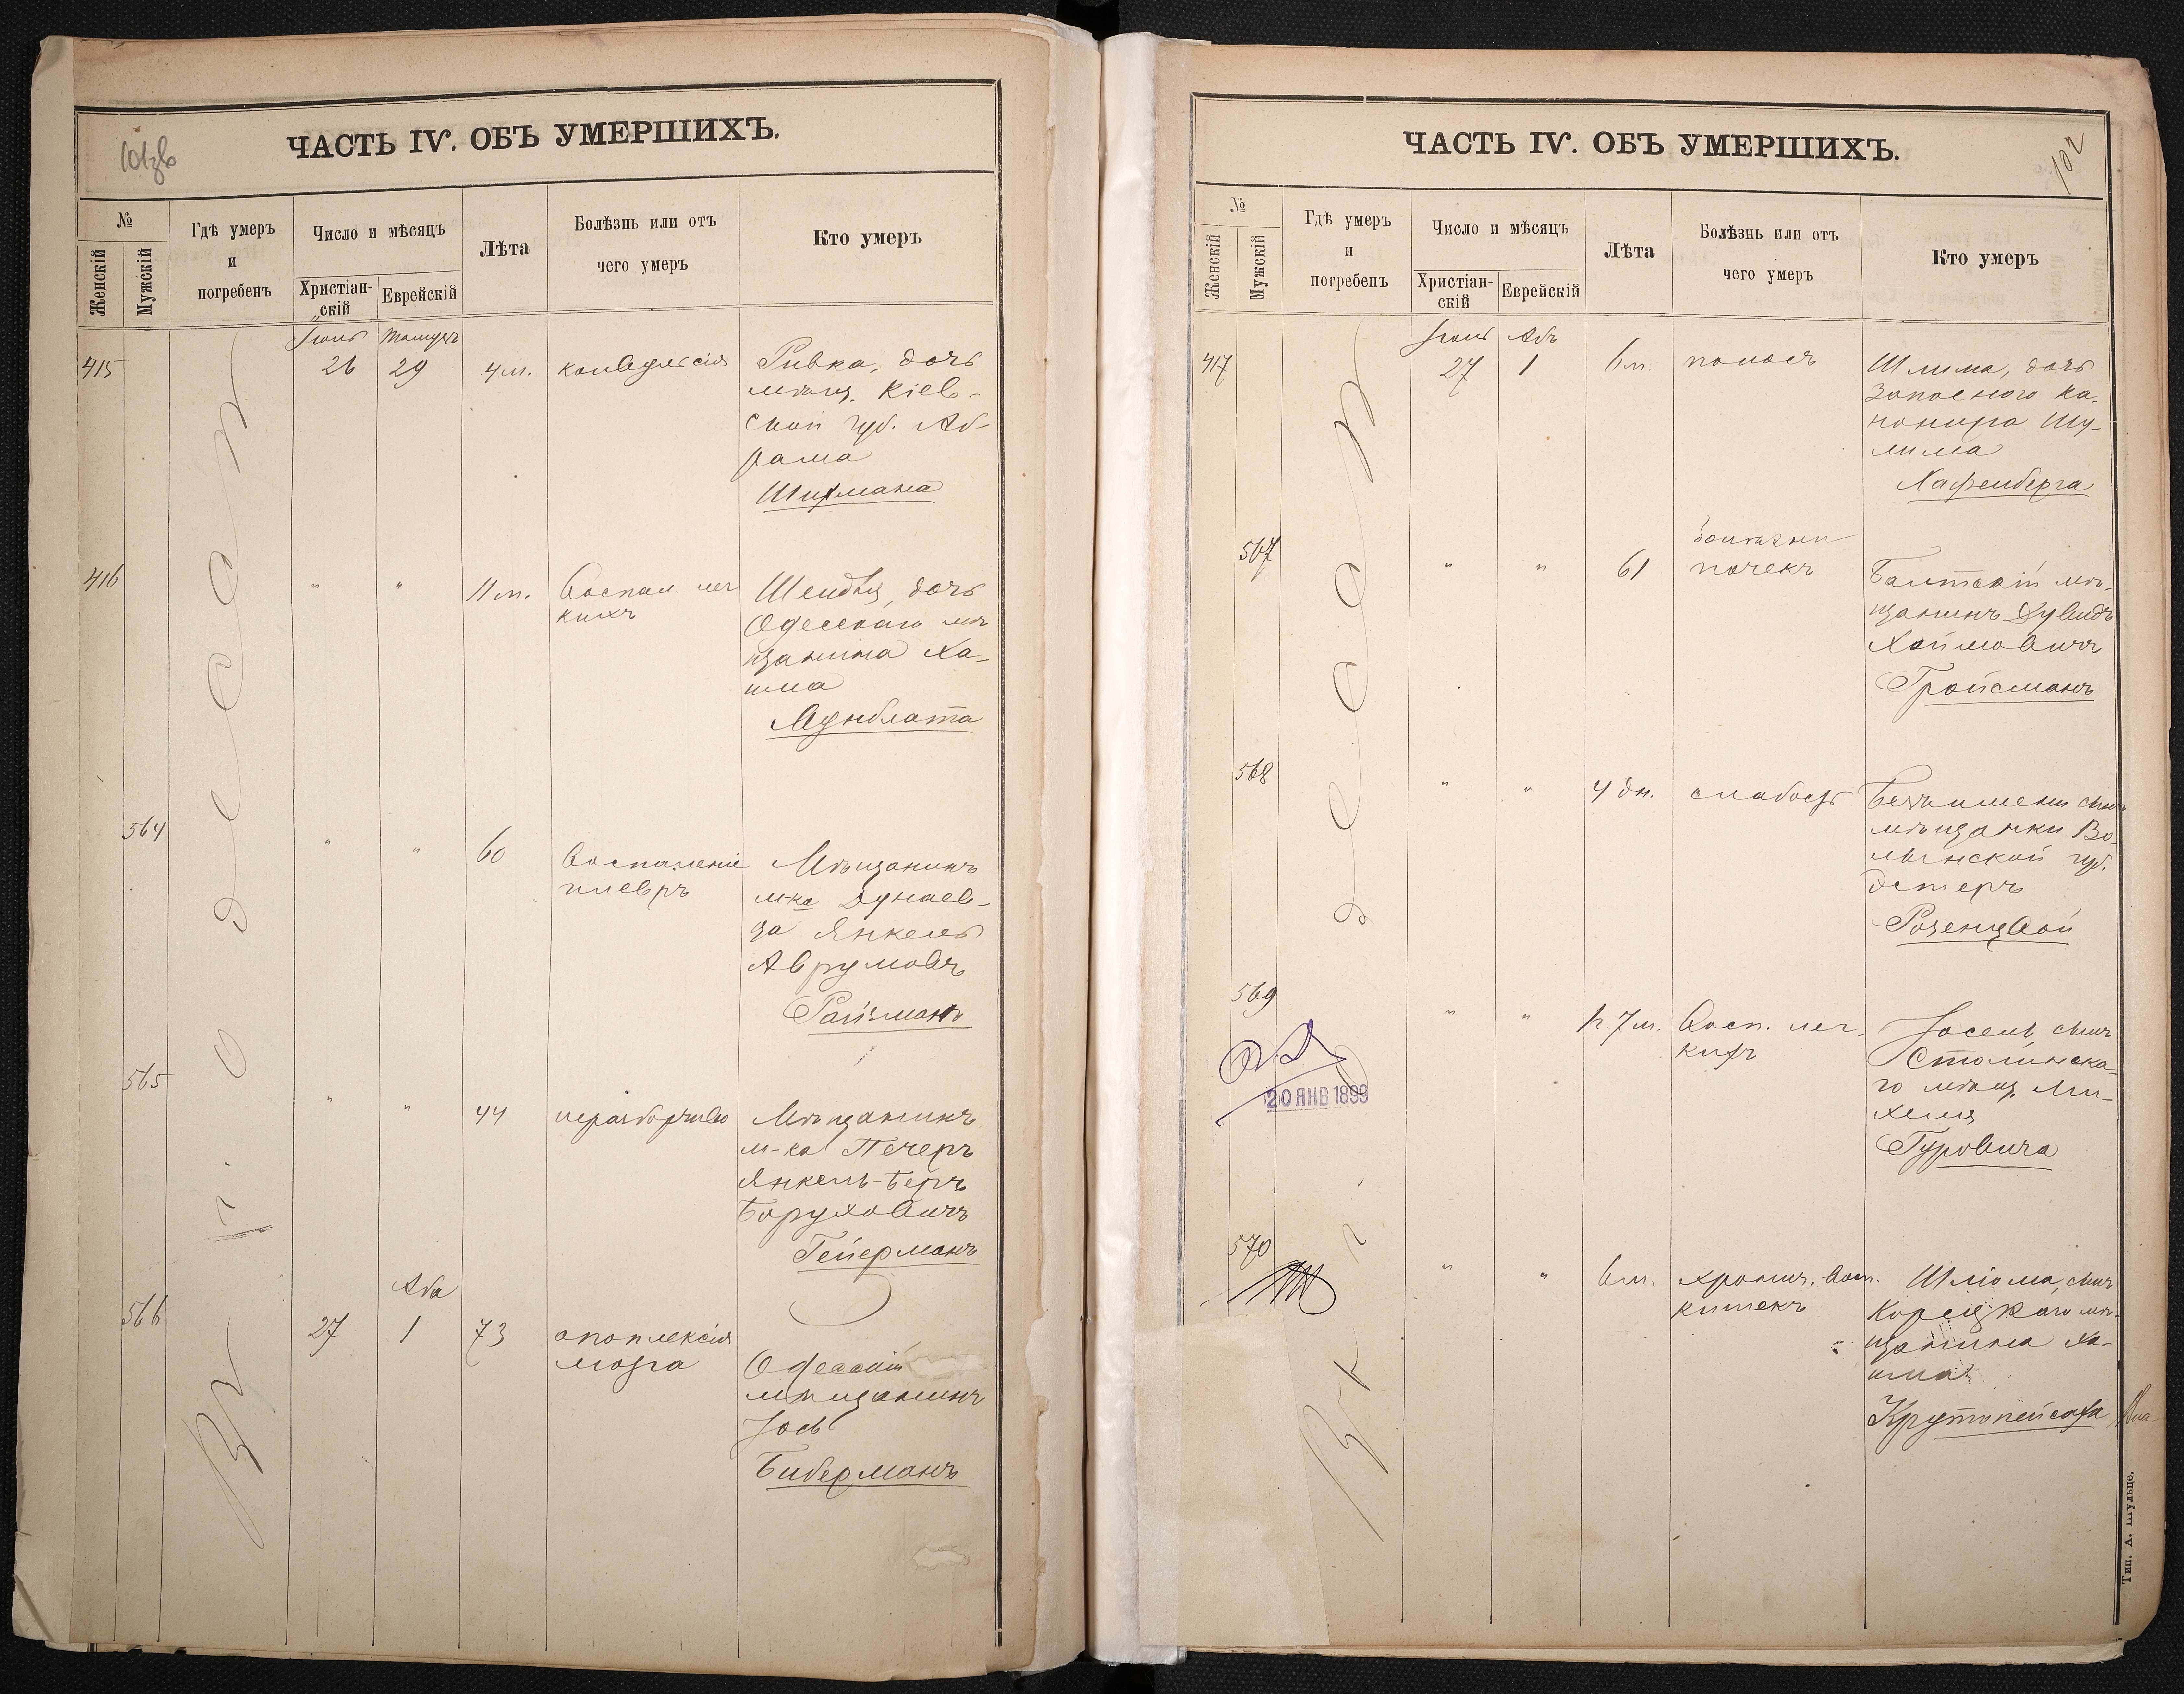 101об
ЧАСТЬ IV. ОБЪ УМЕРШИХЪ.
№
Женскій
Мужскій
Гдѣ умеръ
и
погребенъ
Число и мѣсяцъ
Христіан-
скій
Еврейскій
Лѣта
Болѣзнь или отъ
чего умеръ
Кто умеръ
Въ г. Одессѣ
Іюль Тамузъ
415 26 29 4 м. конвульсія Ривка, дочь
мѣщ. Кіев-
ской губ. Аб-
рама
Шихмана
416 " " 11 м. Воспал. лег
кихъ
Шейдля, дочь
Одесскаго мѣ
щанина Ха-
има
564 " " 60 Воспаленіе
плевръ
Мѣщанинъ
м-ка Дунаев-
ца Янкель
Аврумовъ
Райзманъ
565 " " 44 неразборчиво Мѣщанинъ
м-ка Печеръ
Янкель-Беръ
Боруховичъ
Гейерманъ
Аба
566 27 1 73 апоплексія
мозга
Одесскій
мѣщанинъ
Іось
Биберманъ
102
ЧАСТЬ IV. ОБЪ УМЕРШИХЪ.
№
Женскій
Мужскій
Гдѣ умеръ
и
погребенъ
Число и мѣсяцъ
Христіан-
скій
Еврейскій
Лѣта
Болѣзнь или отъ
чего умеръ
Кто умеръ
Въ г. Одессѣ
Іюль Абъ
417 27 1 6 м. поносъ Шлима, дочь
Запаснаго ка-
нонира Шу-
лима
Хафенберга
567 " " 61 болѣзни
почекъ
Балтскій мѣ-
щанинъ Дувидъ
Хаймовичъ
Гройсманъ
568 " " 4 дн. слабость Безъ имени сынъ
мѣщанки Во-
лынской губ.
Эстеръ
Розенцвой
569 " " 1г 7 м. Восп. лег-
кихъ
Іосель, сынъ
Столинска-
го мѣщ. Ми-
хеля
Гуровича
20 ЯНВ 1899
570 " " 6 м. хронич. восп.
кишекъ
Шлiома, сынъ
Корецкаго мѣ-
щанина Ха-
има
Крутопейсаха
Тип. А. Шульце.